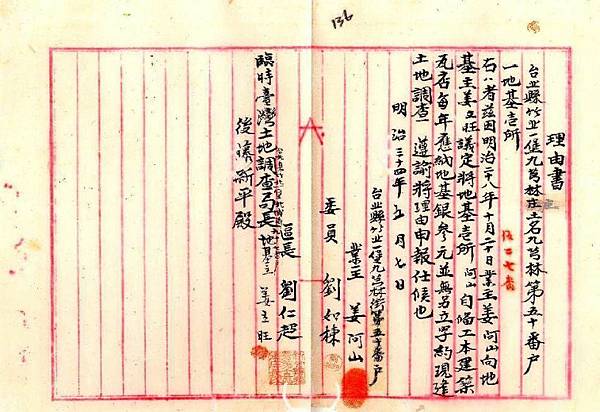 136
理由書
台北縣竹北一堡九芎林庄土名九芎林第五十番戶
一地基壱所
右ハ者茲因明治二十八年十月二十日業主姜阿山向地
基主姜立旺議定將地基壱所阿山自備工本建築
瓦店每年應納地基銀參元並無另立字約現逢
土地調查遵諭將理由申報仕候也
明治三十四年五月七日
台北縣竹北一堡九芎林街第五十番戶
業主 姜阿山
委員 劉如棟
區長 劉仁超
地基主 姜立旺
臨時臺灣土地調查局長
後藤新平殿